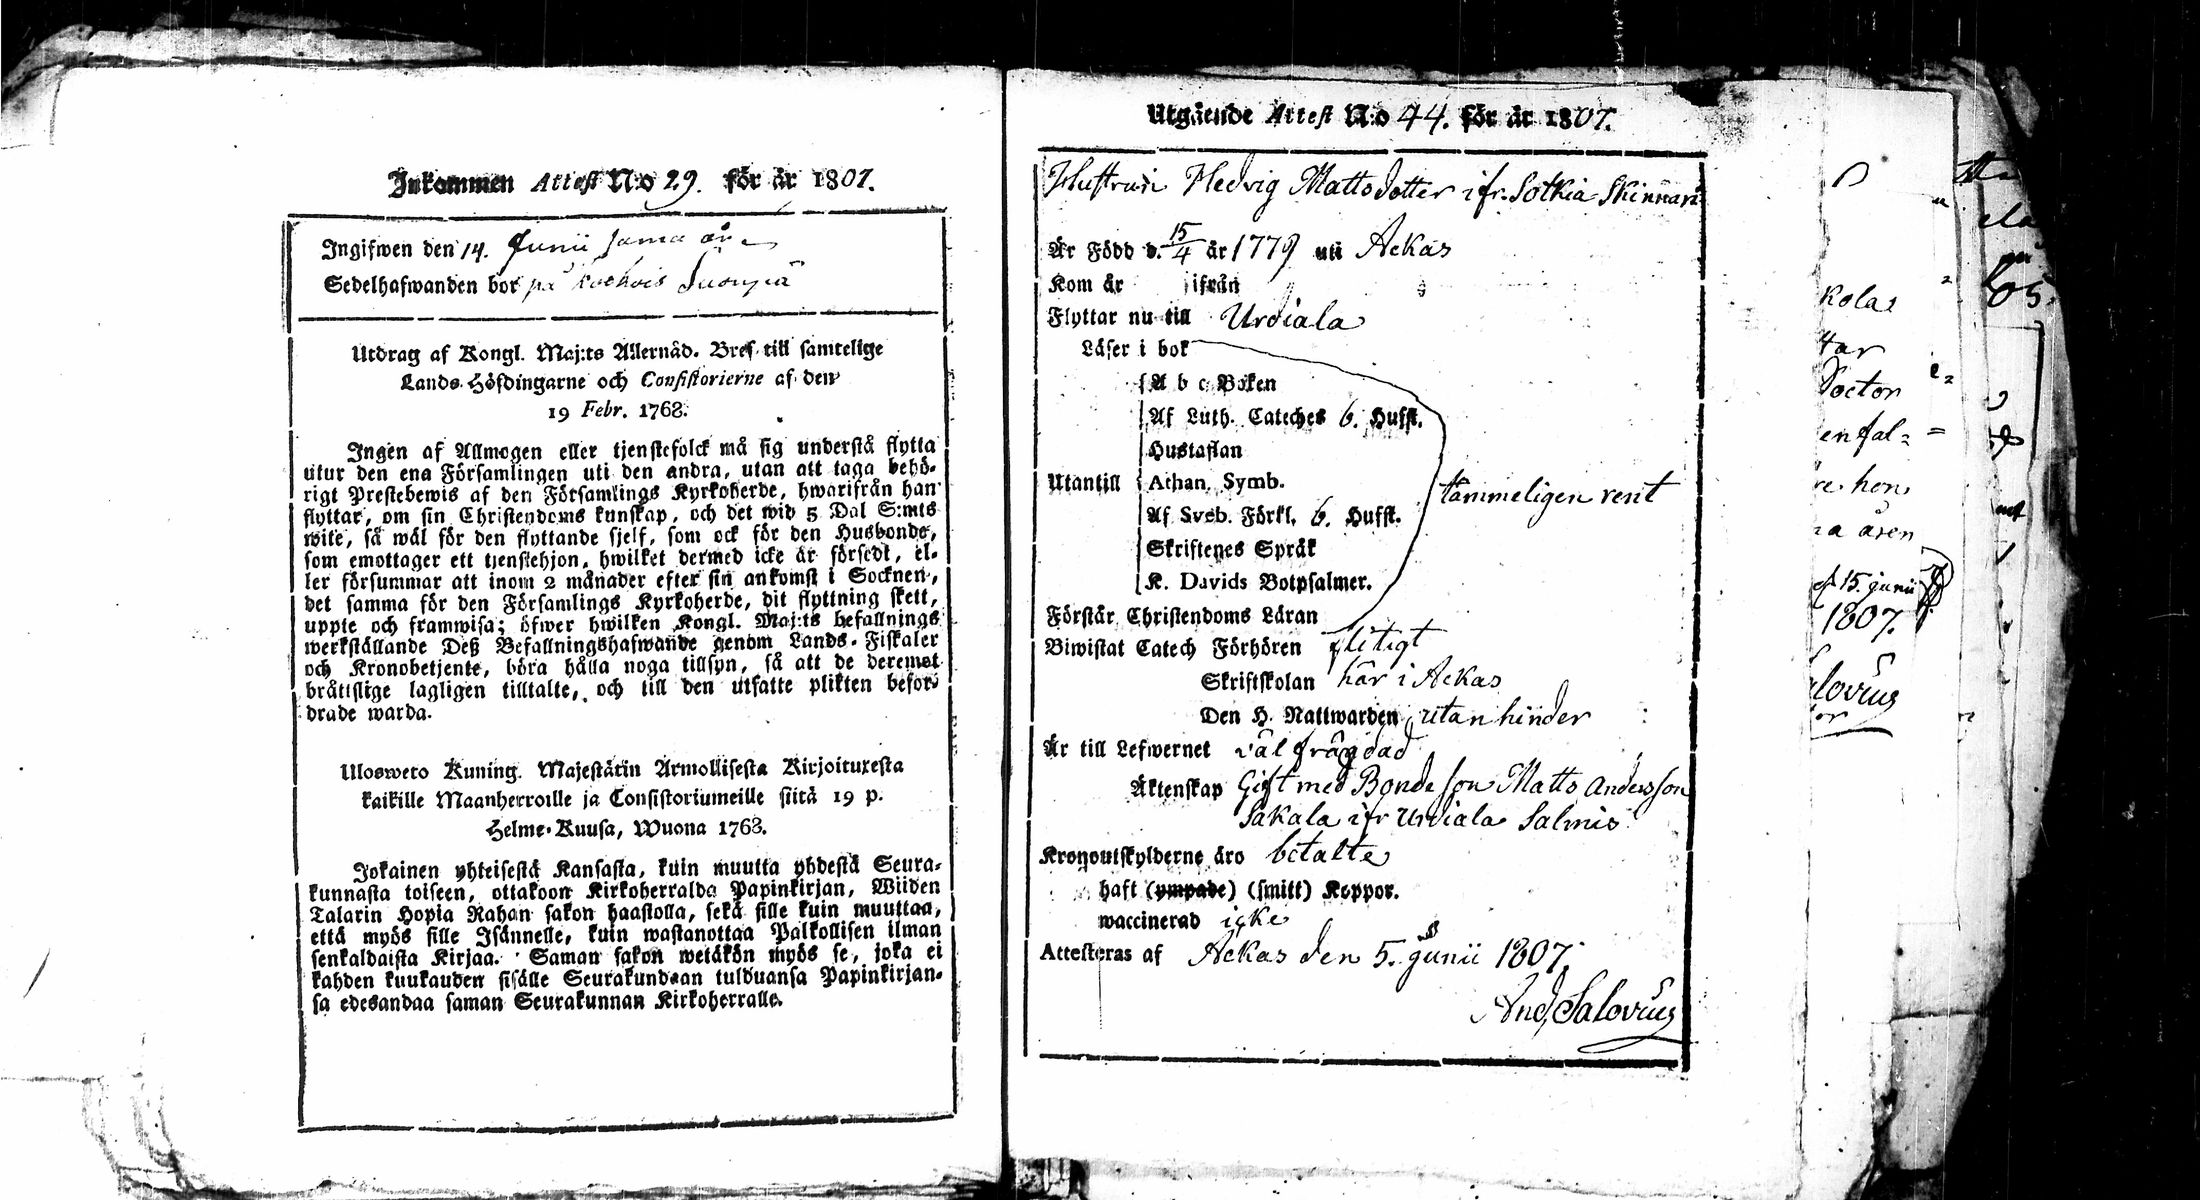 Inkommen Attest N:o 29. för år 1807.
Ingifwen den 14. Junii sama år
Sedelhafwanden bor på
Utdrag af Kongl. Maj:ts Allernåd. Bref till samtelige
Lands-Höfdingarne och Consistorierne af den
19 Febr. 1768.
Ingen af Allmogen eller tjenstefolck må sig understå flytta
utur den ena Församlingen uti den andra, utan att taga behö-
rigt Prestebewis af den Församlings Kyrkoherde, hwarifrån han
flyttar, om sin Christendoms kunskap, och det wid 5 Dal S:mts
wite, så wäl för den flyttande sjelf, som ock för den Husbonde,
som emottager ett tjenstehjon, hwilket dermed icke är försedt, el-
ler försummar att inom 2 månader efter sin ankomst i Socknen,
det samma för den Församlings Kyrkoherde, dit flyttning skett,
uppte och framwisa; öfwer hwilken Kongl. Maj:ts befallnings
werkställande Deß Befallningshafwande genom Lands-Fiskaler
och Kronobetjente, böra hålla noga tillsyn, så att de deremot
bråttslige lagligen tilltalte, och till den utsatte plikten befor-
drade warda.
Ulosweto Kuning. Majestätin Armollisesta Kirjoituxesta
kaikille Maanherroille ja Consistoriumeille siitä 19 p.
Helme-Kuusa, Wuona 1768.
Jokainen yhteisestä Kansasta, kuin muutta yhdestä Seura-
kunnasta toiseen, ottakoon Kirkoherralda Papinkirjan, Wiiden
Talarin Hopia Rahan sakon haastolla, sekä sille kuin muuttaa,
että myös sille Isännelle, kuin wastanottaa Palkollisen ilman
senkaldaista Kirjaa. Saman sakon wetäkön myös se, joka ei
kahden kuukauden sisälle Seurakundaan tulduansa Papinkirjan-
sa edesandaa saman Seurakunnan Kirkoherralle.
Utgående Attest N:o 44. för år 1807.
Hustrun Hedvig Mattsdotter ifr. Sotkia Skinnari
Är Född d. 15/4 år 1779 uti Ackas
Kom år ifrån
Flyttar nu till Urdiala
Läser i bok
A b c Boken
Af Luth. Cateches 6. Hufst.
Hustaflan
Utantill Athan. Symb. tämmeligen rent
Af Sveb. Förkl. 6. Hufst.
Skriftenes Språk
K. Davids Botpsalmer.
Förstår Christendoms Läran
Biwistat Catech Förhören flitigt
Skriftskolan här i Ackas
Den H. Nattwarden utan hinder
Är till Lefwernet väl frägdad
Äktenskap Gift med Bonde son Matts Andersson
Sakala ifr Urdiala Salmis
Kronoutskylderne äro betalte
haft (ympade) (smitt) Koppor.
waccinerad icke
Attesteras af Ackas den 5. Junii 1807.
And. Salovius
kola
tar
Doctor
hon
åren
15. junii
1807.